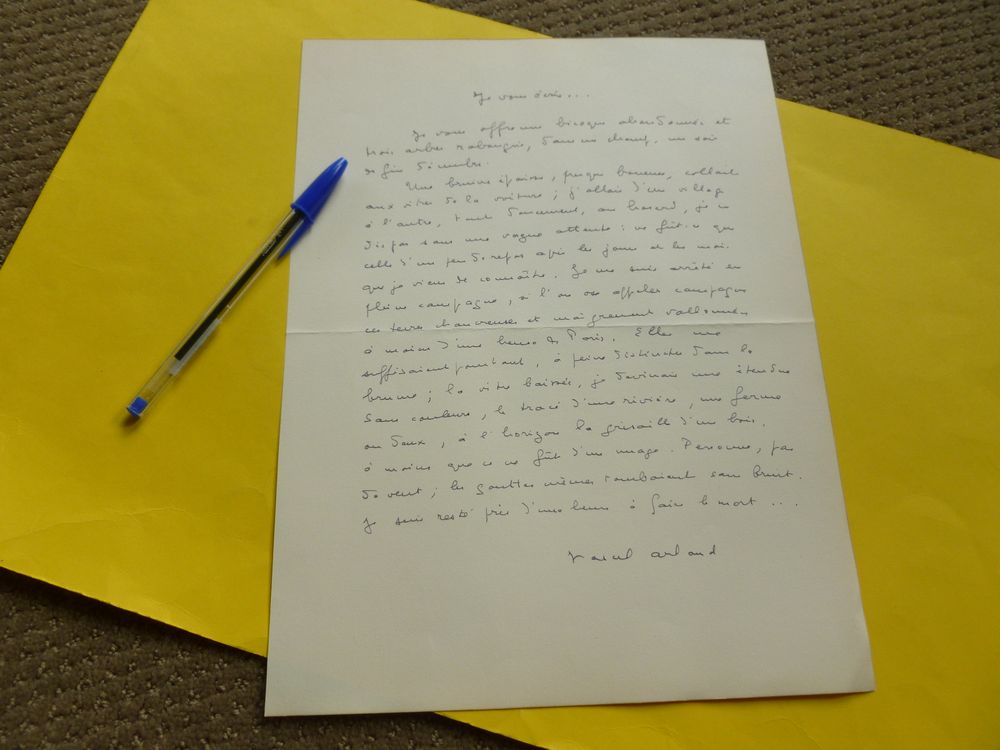 Je vous écris...
Je vous offre une bicoque abandonnée et
trois arbres rabougris, dans un champ, un soir
de fin décembre.
Une brume épaisse, presque boueuse, collait
aux vitres de la voiture ; j'allais d'un village
à l'autre, tout doucement, au hasard, je ne
dis pas sans une vague attente : ne fût-ce que
celle d'un peu de repos après les jours et les mois
que je viens de connaître. Je me suis arrêté en
pleine campagne, si l'on ose appeler campagne
ces terres chancreuses et maigrement vallonnées
à moins d'une heure de Paris. Elles me
suffisaient pourtant, à peine distinctes dans la
brume ; la vitre baissée, je devinais une étendue
sans couleurs, le tracé d'une rivière, une ferme
ou deux, à l'horizon la grisaille d'un bois,
à moins que ce ne fût d'un nuage. Personne, pas
de vent ; les gouttes mêmes tombaient sans bruit.
Je suis resté près d'une heure à faire le mort...
Marcel Arland